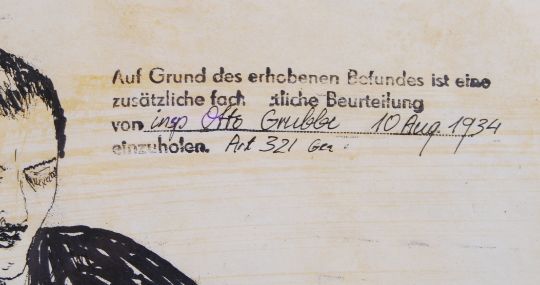 Auf Grund des erhobenen Befundes ist eine
zusätzliche fach tliche Beurteilung
von insp Otto Grubbe 10 Aug. 1934
einzuholen. Art 321